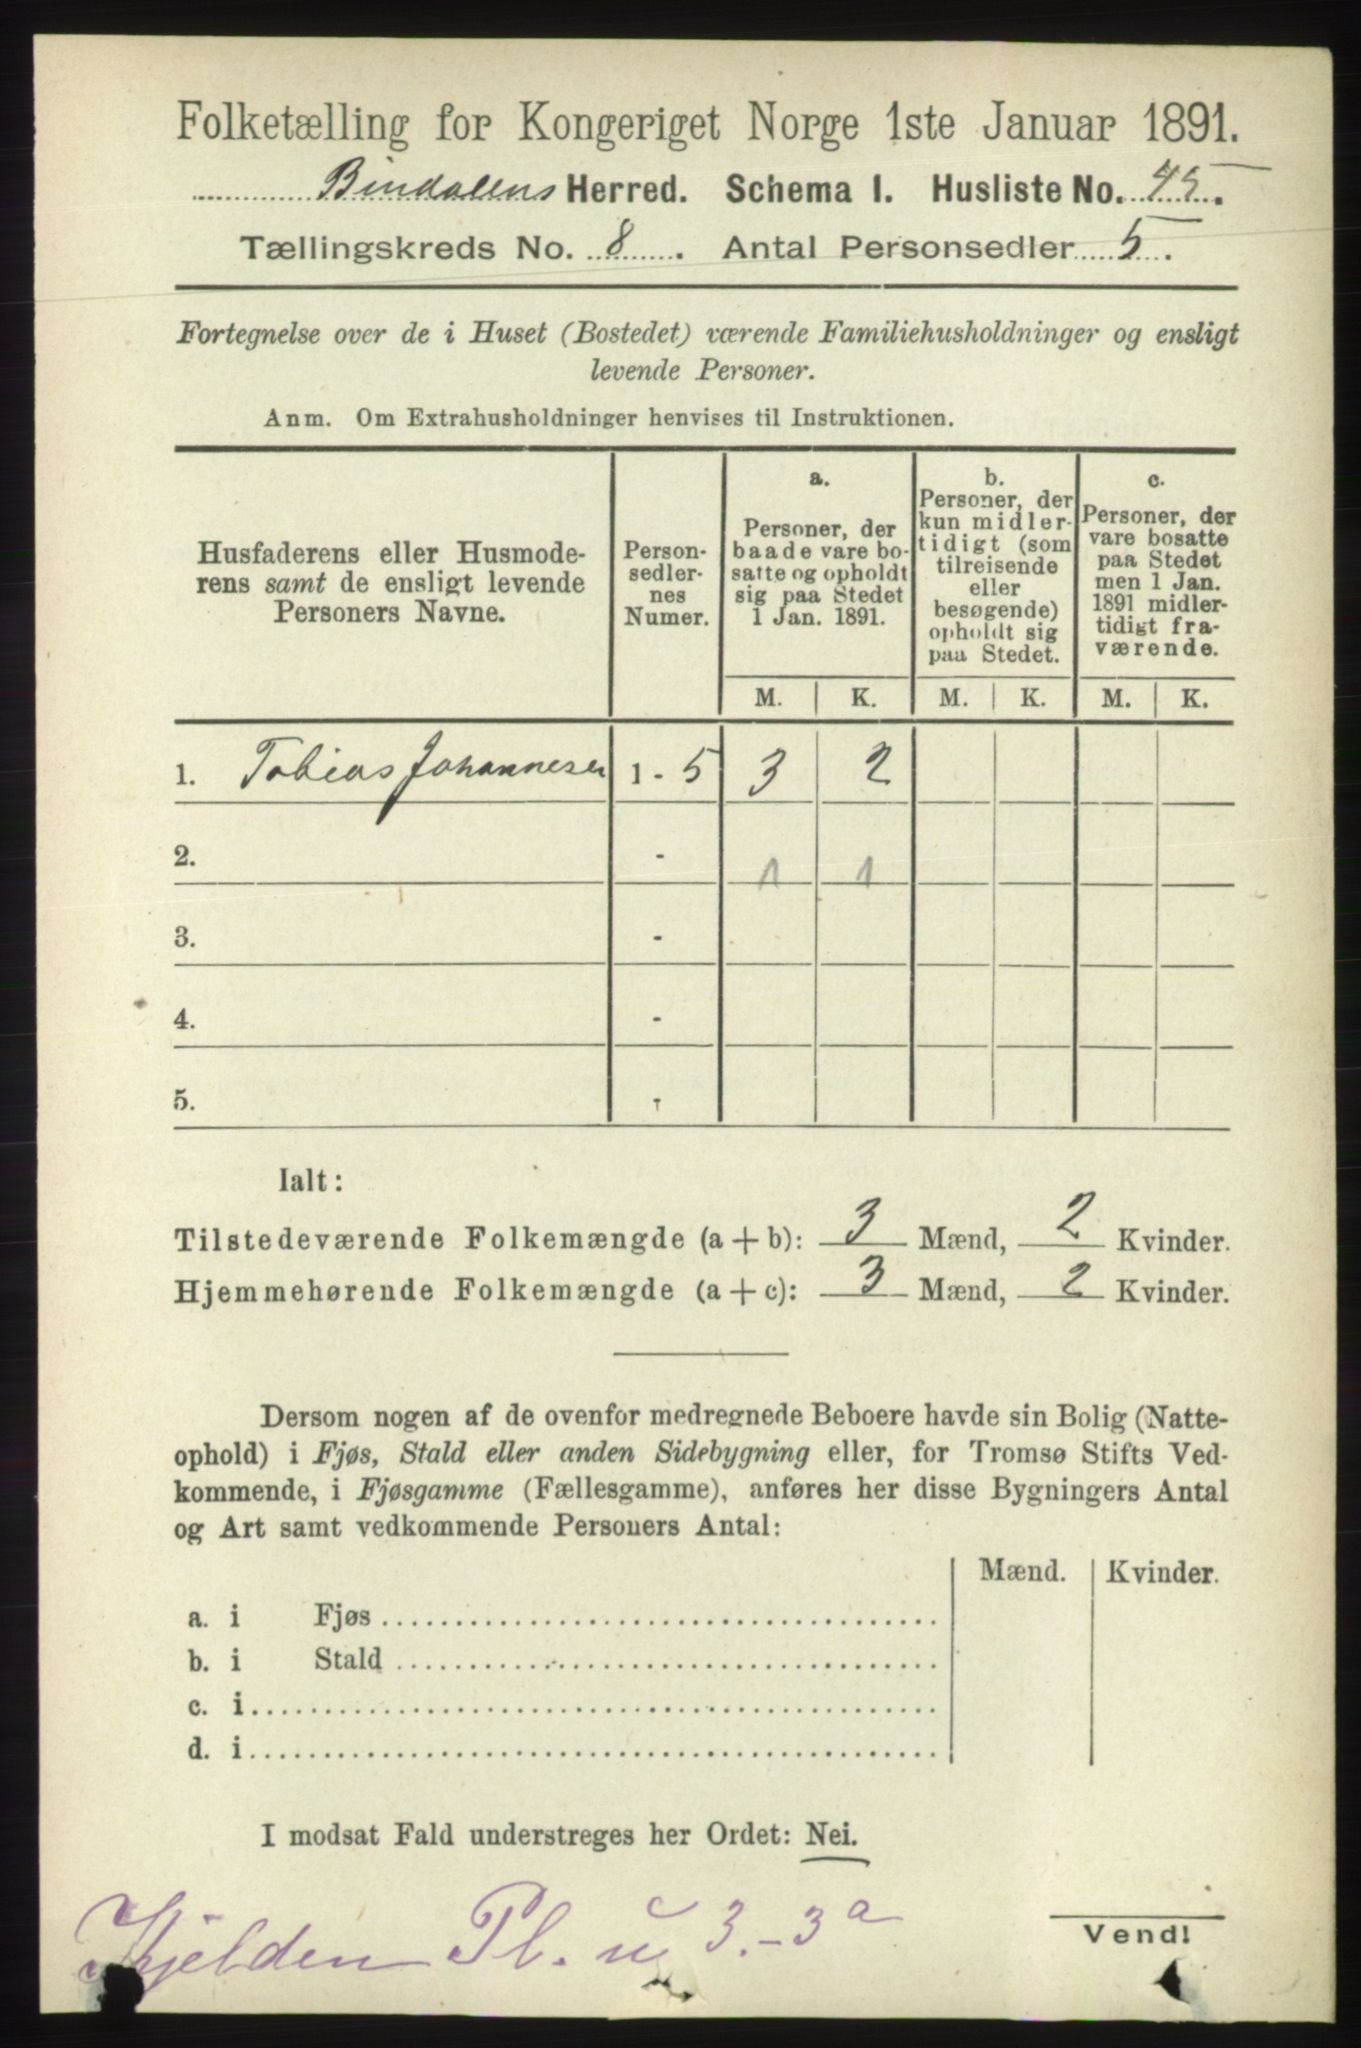 Folketælling for Kongeriget Norge 1ste Januar 1891.
Bindalens Herred. Schema I. Husliste No. 45.
Tællingskreds No. 8. Antal Personsedler 5.
Fortegnelse over de i Huset (Bostedet) værende Familiehusholdninger og ensligt
levende Personer.
Anm. Om Extrahusholdninger henvises til Instruktionen.
Husfaderens eller Husmode-
rens samt de ensligt levende
Personers Navne.
Person-
sedler-
nes
Numer.
a.
Personer, der
baade vare bo-
satte og opholdt
sig paa Stedet
1 Jan. 1891.
b.
Personer, der
kun midler-
tidigt (som
tilreisende
eller
besøgende)
opholdt sig
paa Stedet.
c.
Personer, der
vare bosatte
paa Stedet
men 1 Jan.
1891 midler-
tidigt fra-
værende.
M. K. M. K. M. K.
1. Tobias Johannesen 1 - 5 3 2
2. - 1 1
3. -
4. -
5. -
Ialt:
Tilstedeværende Folkemængde (a + b): 3 Mænd, 2 Kvinder.
Hjemmehørende Folkemængde (a + c): 3 Mænd, 2 Kvinder.
Dersom nogen af de ovenfor medregnede Beboere havde sin Bolig (Natte-
ophold) i Fjøs, Stald eller anden Sidebygning eller, for Tromsø Stifts Ved-
kommende, i Fjøsgamme (Fællesgamme), anføres her disse Bygningers Antal
og Art samt vedkommende Personers Antal:
Mænd. Kvinder.
a. i Fjøs
b. i Stald
c. i
d. i
I modsat Fald understreges her Ordet: Nei.
Kjelden Pl. u 3.-3a
Vend!